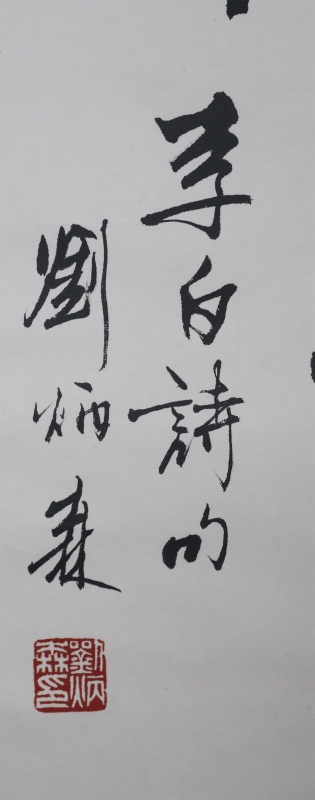 李白詩句
劉炳森
劉炳森印